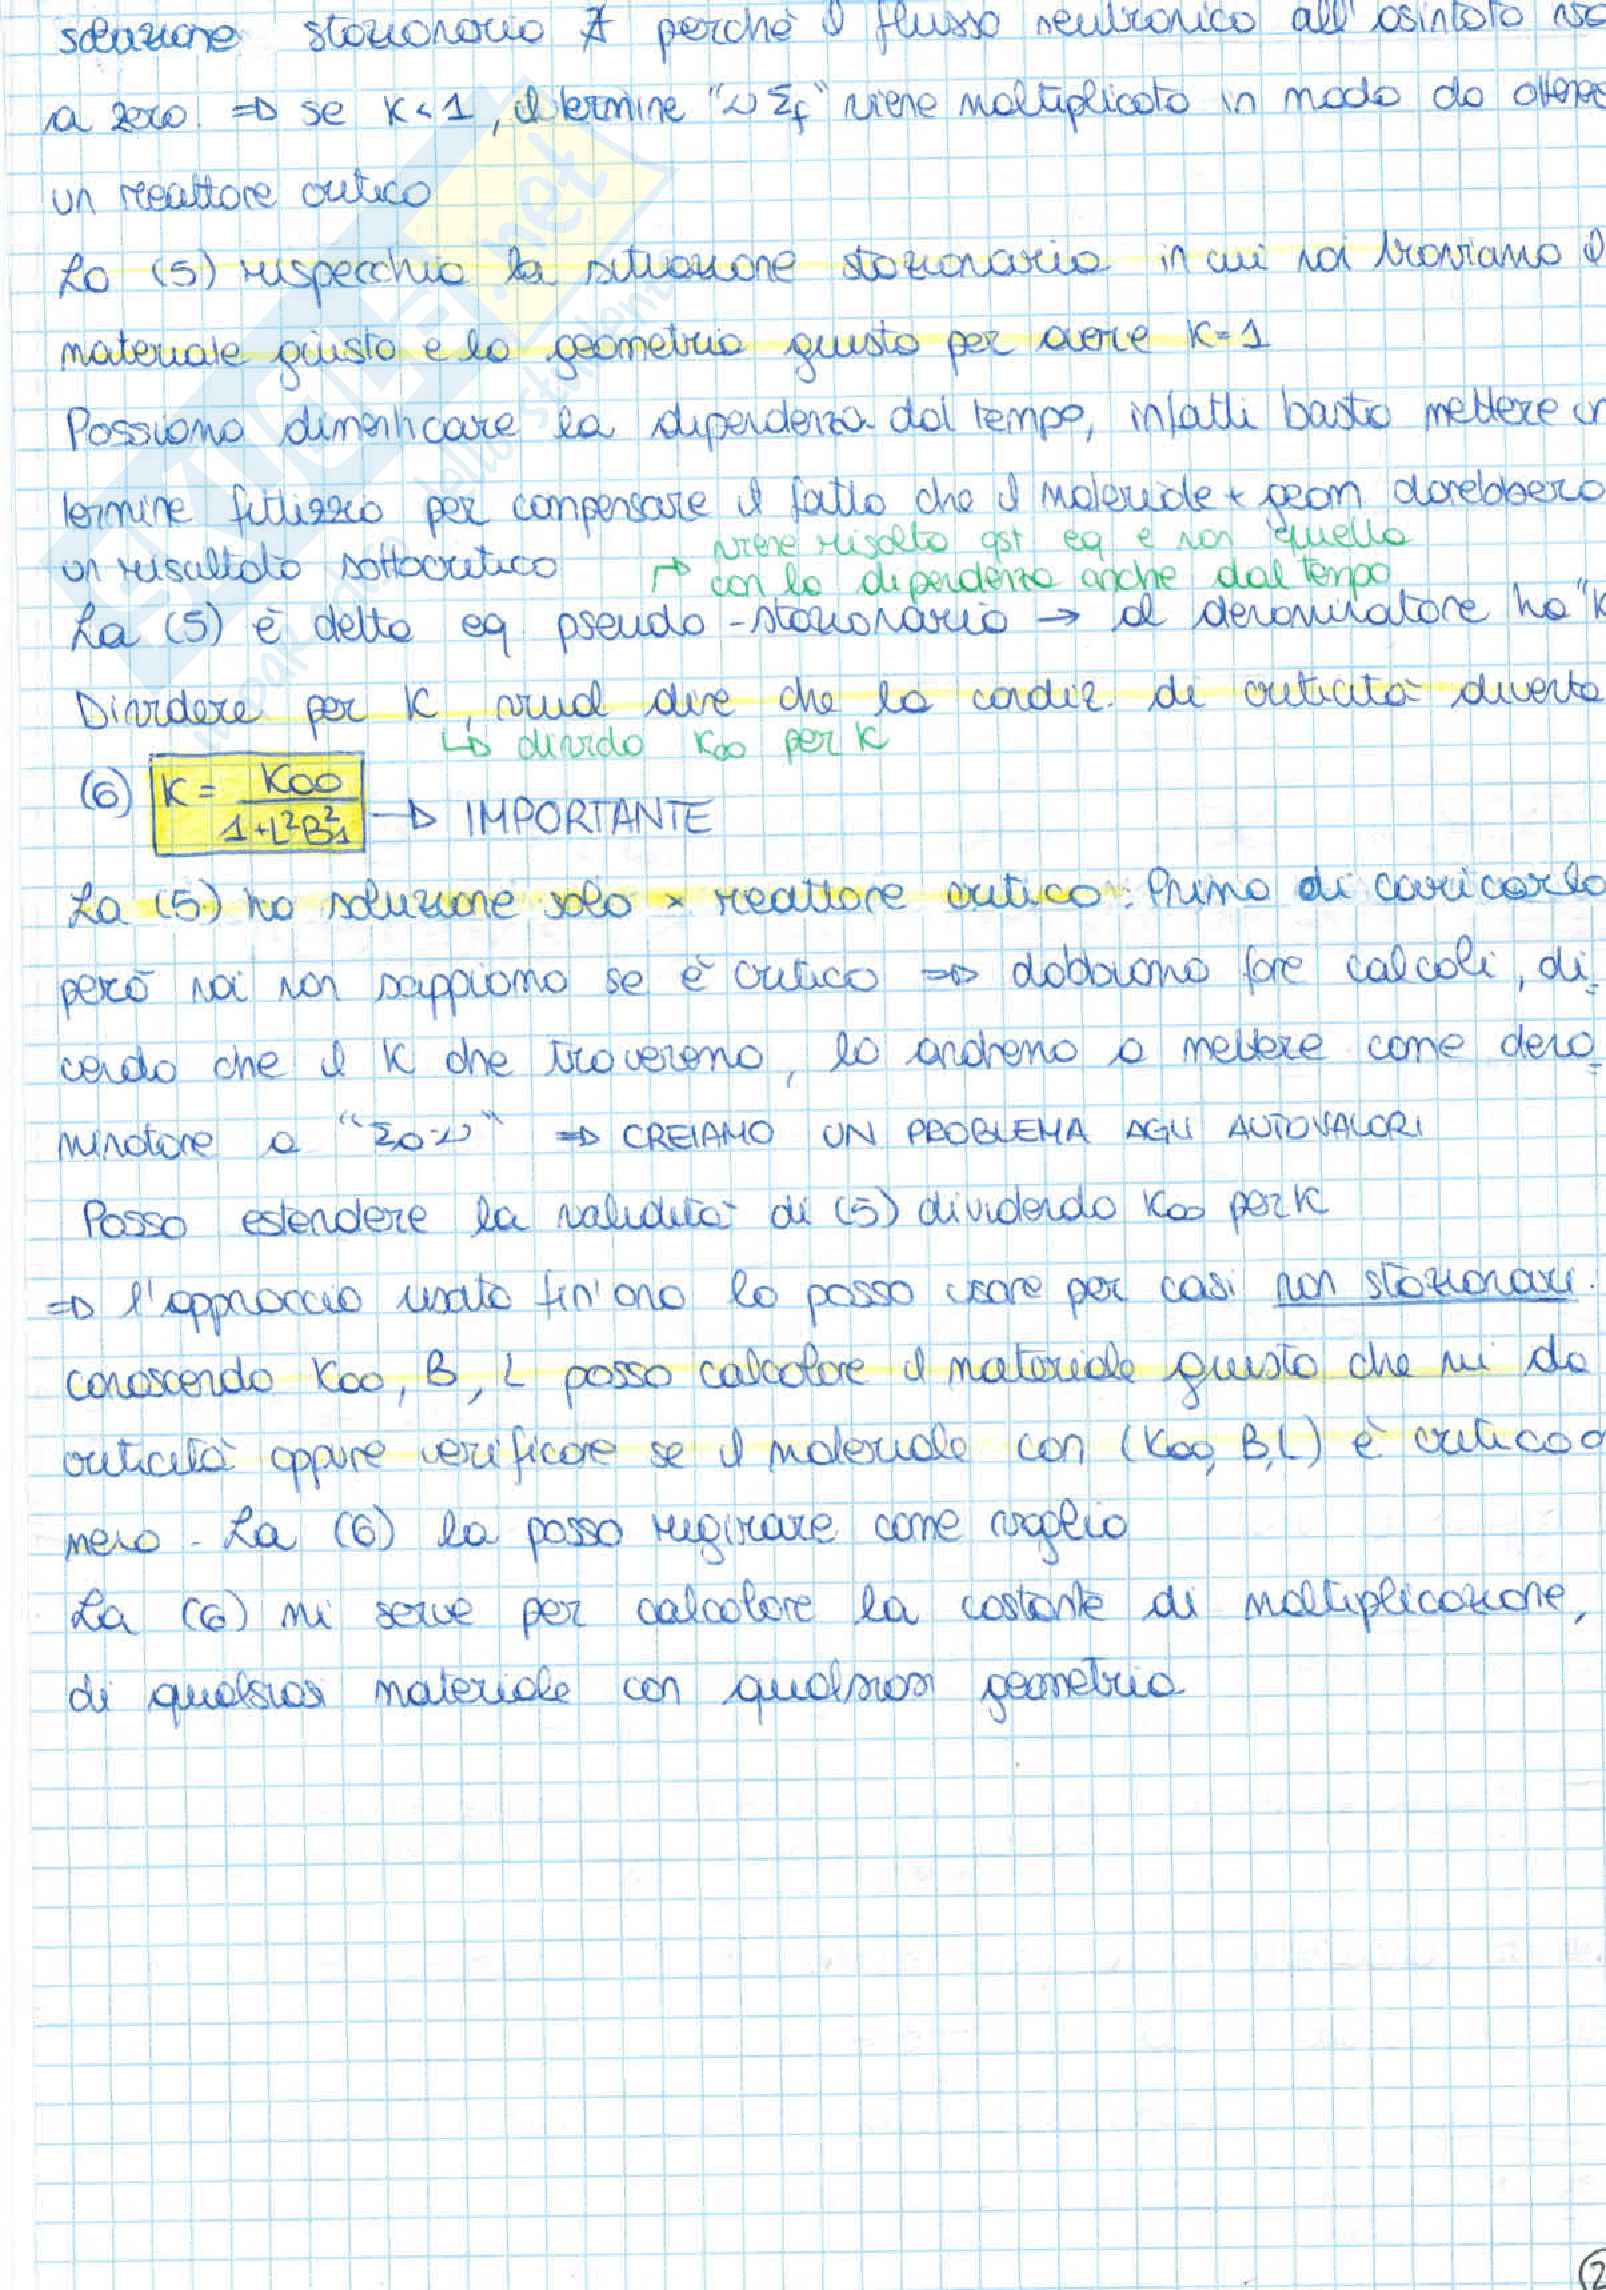 soluzione stazionaria ∄ perchè il flusso neutronico all'asintoto va
a zero. => se K<1, il termine "νΣf" viene moltiplicato in modo da ottenere
un reattore critico
La (5) rispecchia la situazione stazionaria in cui noi troviamo il
materiale giusto e la geometria giusta per avere K=1
Possiamo dimenticare la dipendenza dal tempo, infatti basta mettere un
termine fittizzio per compensare il fatto che il materiale + geom darebbero
viene risolta qst eq e non quella
un risultato sottocritico
↱ con la dipendenza anche dal tempo
La (5) è detta eq pseudo-stazionaria → al denominatore ho "K
Dividere per K, vuol dire che la condiz. di criticità diventa
↳ divido K∞ per K
(6) K = K∞ / 1+L²B²₁ → IMPORTANTE
La (5) ha soluzione solo x reattore critico. Prima di caricarlo
però noi non sappiamo se è critico => dobbiamo fare calcoli, di=
cendo che il K che troveremo, lo andremo a mettere come deno=
minatore a => CREIAMO UN PROBLEMA AGLI AUTOVALORI
Posso estendere la validità di (5) dividendo K∞ per K
=> l'approccio usato fin'ora lo posso usare per casi non stazionari.
conoscendo K∞, B, L posso calcolare il materiale giusto che mi da
criticità oppure verificare se il materiale con (K∞, B, L) è critico o
meno - La (6) la posso rigirare come voglio
La (6) mi serve per calcolare la costante di moltiplicazione,
di qualsiasi materiale con qualsiasi geometria
2